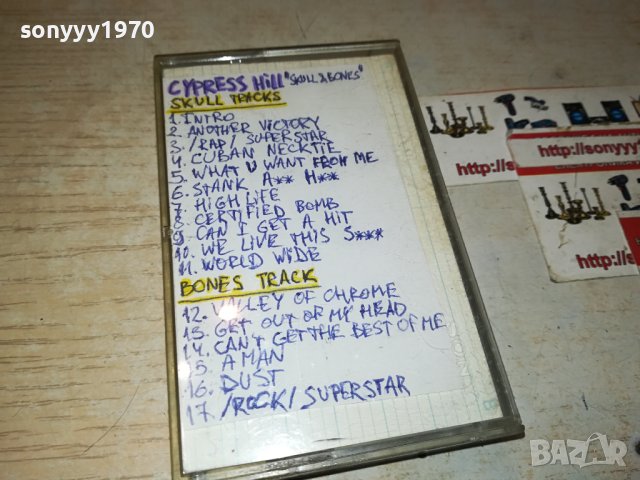 sonyyy1970
CYPRESS HILL "SKULL & BONES"
SKULL TRACKS
1. INTRO
2. ANOTHER VICTORY
3. /RAP/ SUPERSTAR
4. CUBAN NECKTIE
5. WHAT U WANT FROM ME
6. STANK A** H**
7. HIGH LIFE
8. CERTIFIED BOMB
9. CAN I GET A HIT
10. WE LIVE THIS S***
11. WORLD WIDE
BONES TRACK
12. VALLEY OF CHROME
13. GET OUT OF MY HEAD
14. CAN'T GET THE BEST OF ME
15. A MAN
16. DUST
17. /ROCK/ SUPERSTAR
http://s
http://sonyyy1
http://so
BAZAR
bg